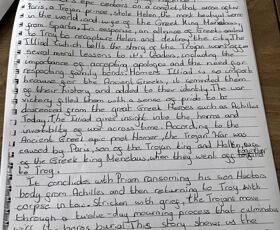 centers on a conflict that arose after
Paris, a Trojan prince, stole Helen, the most beautiful women
in the world, and wife of the Greek King Menelaus,
from Sparta. In response, an alliance of Greeks sailed
to Troy to recapture Helen and destroy the city. The
Illiad which tells the story of the Trojan war
several moral lessons to it's readers, including the
importance of accepting apologies and the need for
respecting family bonds. Homers Illiad is so important
because for the Ancient Greeks, it reminded them
of their history and added to their identity. The war
victory filled them with a sense of pride to be
descended from the great Greek Heroes such as Achilles
Today, The Iliad gives insight into the horrors and
inevitability of war across time. According to the
Ancient Greek epic poet Homer, the Trojan War was
caused by Paris, son of the Trojan king and
of the Greek king Menelaus, when they went off together
to Troy.
It concludes with Priam ransoming his son Hectors
body from Achilles and then returning to Troy with
corpse in tow. Stricken with grief, the Trojans move
through a twelve-day mourning process that culminates
burial. This story shows us the